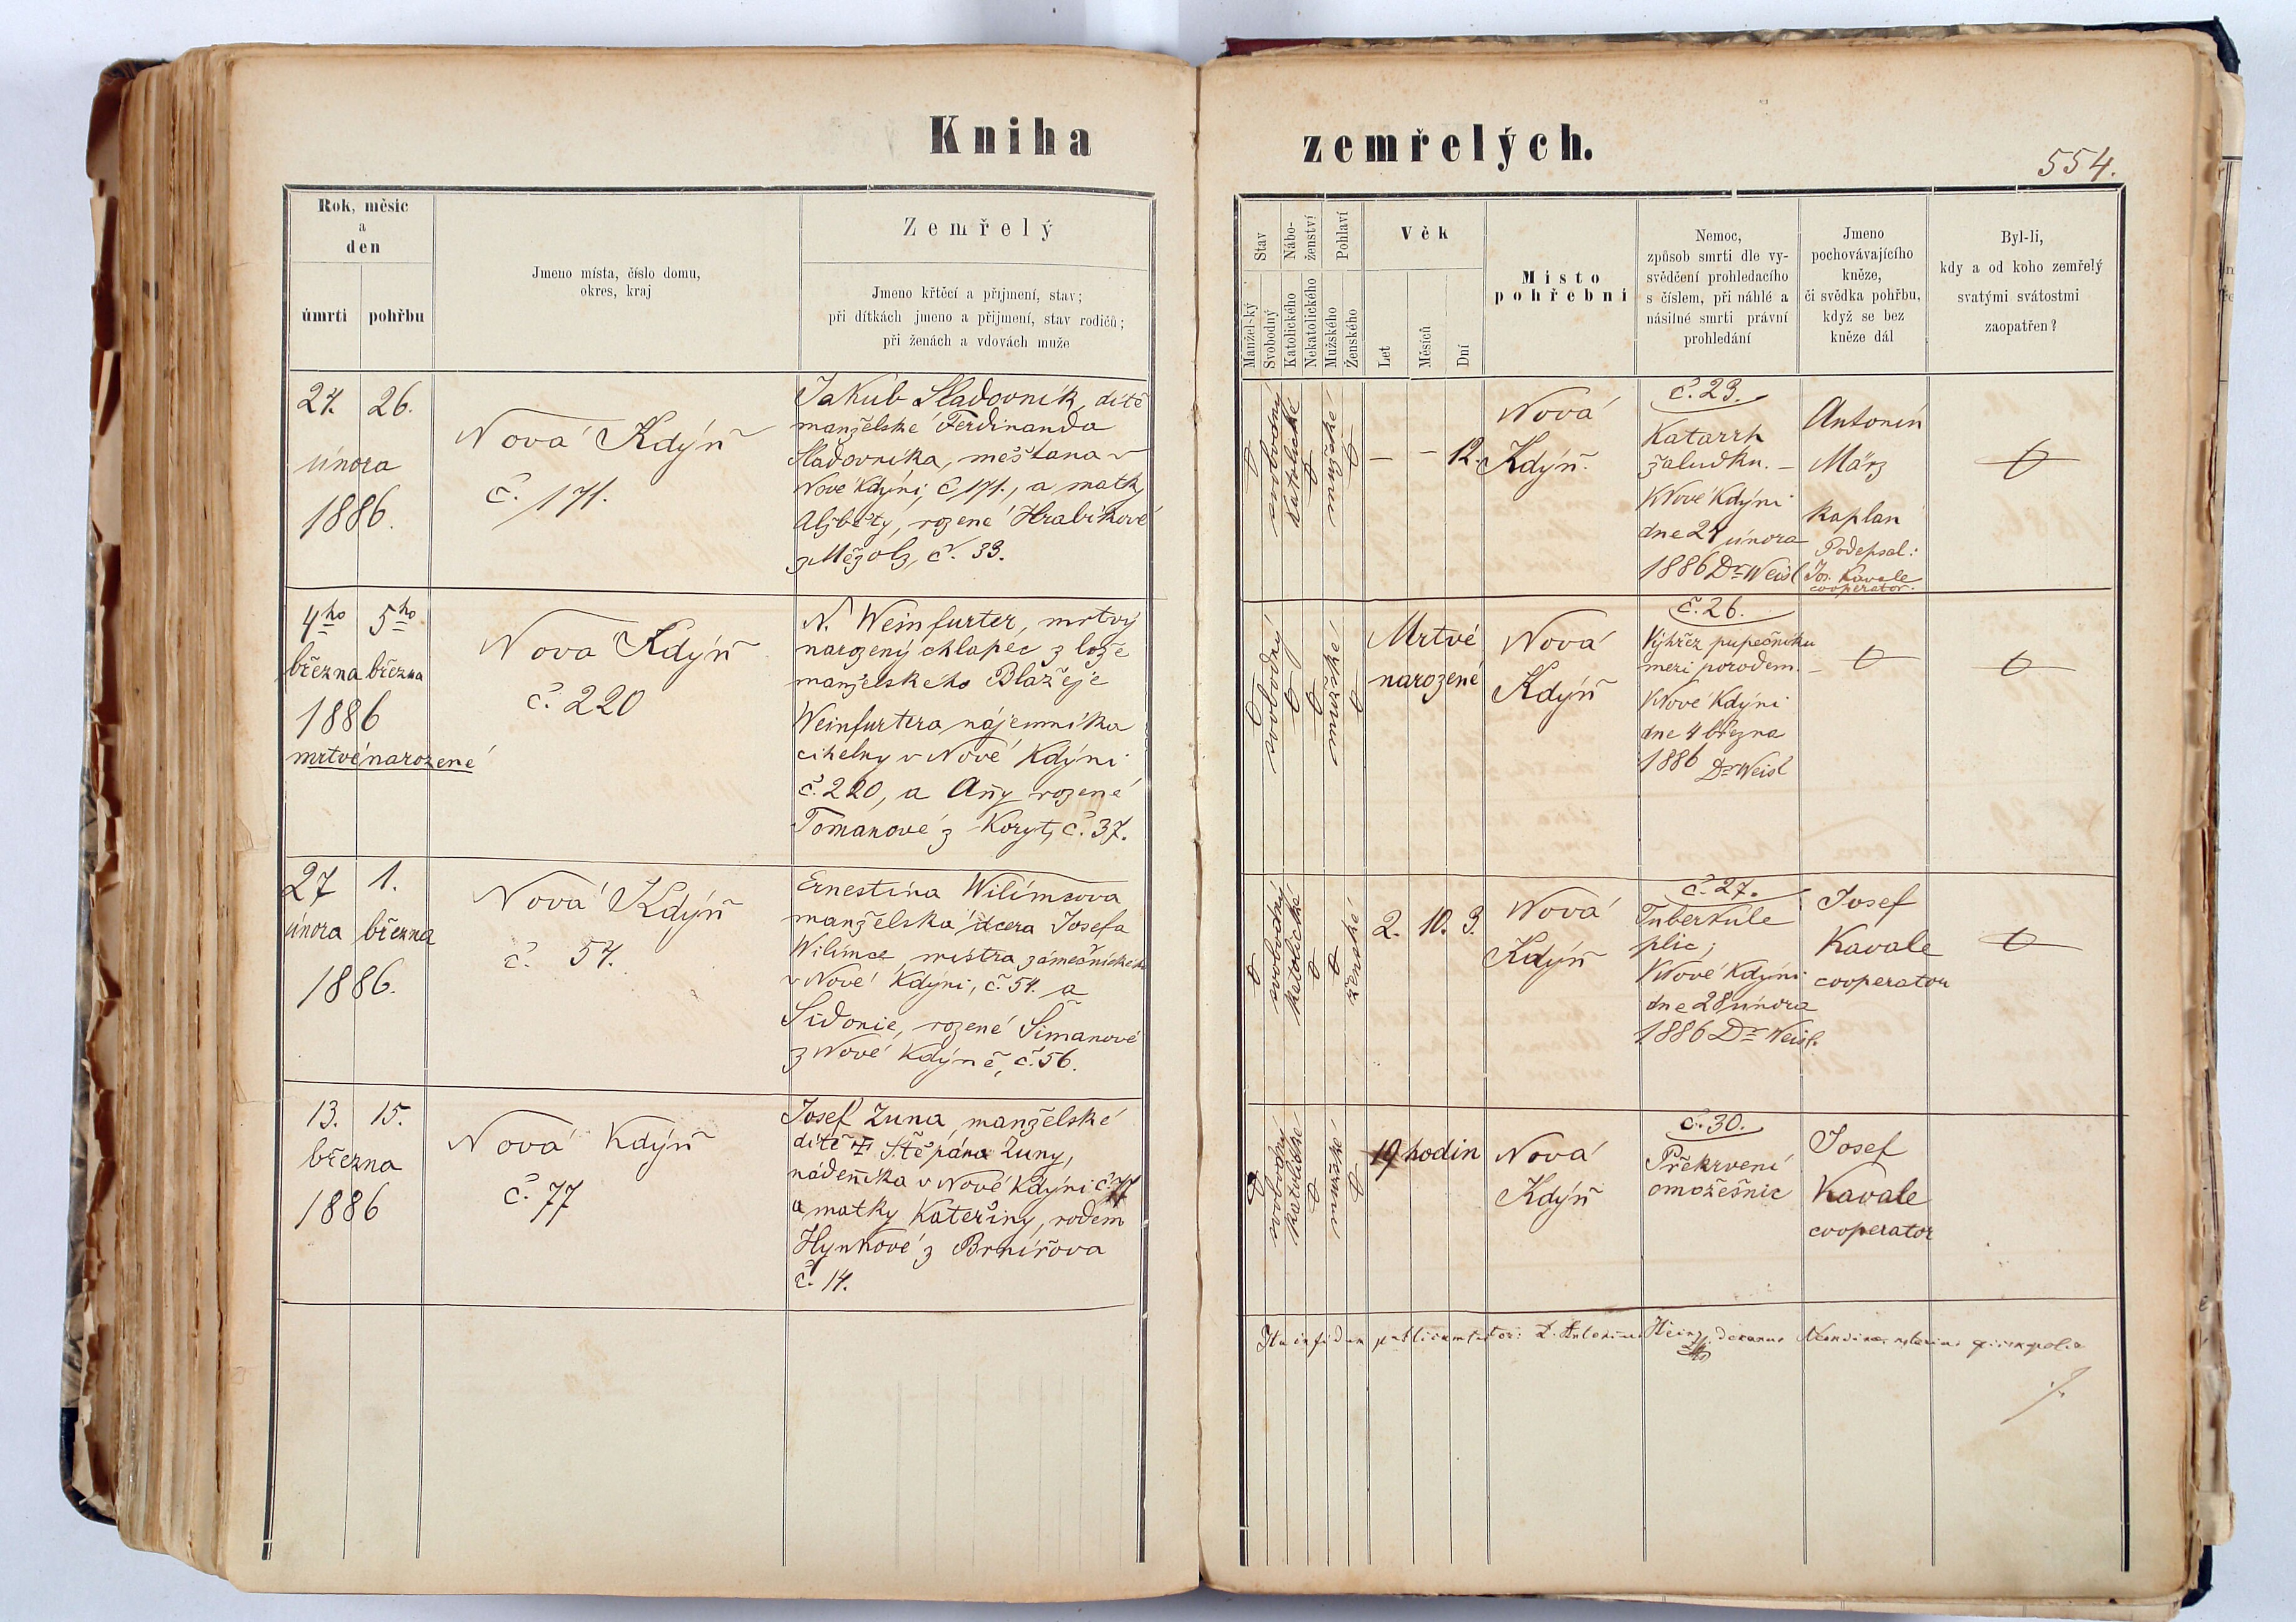 Kniha zemřelých.
554.
Rok, měsíc
a
den
úmrtí
pohřbu
Jmeno místa, číslo domu,
okres, kraj
Zemřelý
Jmeno křtěcí a příjmení, stav;
při dítkách jmeno a příjmení, stav rodičů;
při ženách a vdovách muže
Stav
Manžel-ký
Svobodný
Nábo-
ženství
Katolického
Nekatolického
Pohlaví
Mužského
Ženského
Věk
Let
Měsíců
Dní
Místo
pohřební
Nemoc,
způsob smrti dle vy-
svědčení prohledacího
s číslem, při náhlé a
násilné smrti právní
prohledání
Jmeno
pochovávajícího
kněze,
či svědka pohřbu,
když se bez
kněze dál
Byl-li,
kdy a od koho zemřelý
svatými svátostmi
zaopatřen?
24. 26.
února
1886.
Nová Kdýň
č. 171.
Jakub Sladovník, dítě
manželské Ferdinanda
Sladovníka, měštana v
Nové Kdýni, č. 171., a matky
Alžběty, rozené Hrabíkové
z Mězholz, č. 33.
svobodný
katolické
mužské
– – 12.
Nová
Kdýň.
č. 23.
Katarrh
žaludku. –
V Nové Kdýni
dne 24 února
1886 Dr Weisl
Antonín
März
kaplan
Podepsal:
Jos. Kavale
cooperator.
4ho 5ho
března března
1886
mrtvé narozené
Nová Kdýň
č. 220
N. Weinfurter, mrtvý
narozený chlapec z lože
manželského Blažeje
Weinfurtera nájemníka
cihelny v Nové Kdýni
č. 220, a Anny rozené
Tomanové z Koryt, č. 37.
svobodný
mužské
Mrtvé
narozené
Nová
Kdýň
č. 26.
Výhřez pupečníku
mezi porodem. –
V Nové Kdýni
dne 4 března
1886 Dr Weisl
27 1.
února března
1886.
Nová Kdýň
č. 54.
Ernestina Wilímsova
manželská dcera Josefa
Wilímce, mistra zámečnického
v Nové Kdýni, č. 54. a
Sidonie, rozené Šimanové
z Nové Kdýně, č. 56.
svobodný
katolické
ženské
2. 10. 3.
Nová
Kdýň
č. 27.
Tuberkule
plic;
V Nové Kdýni
dne 28 února
1886 Dr Weisl.
Josef
Kavale
cooperator
13. 15.
března
1886
Nová Kdýň
č. 77
Josef Zuna, manželské
dítě Štěpána Zuny,
nádenníka v Nové Kdýni č. 77
a matky Kateřiny, rodem
Hynkové z Brnířova
č. 14.
svobodný
katolické
mužské
19 hodin
Nová
Kdýň
č. 30.
Překrvení
omozečnic
Josef
Kavale
cooperator
Ita in fidem publicam testor: P. Antonius Heinz, decanus